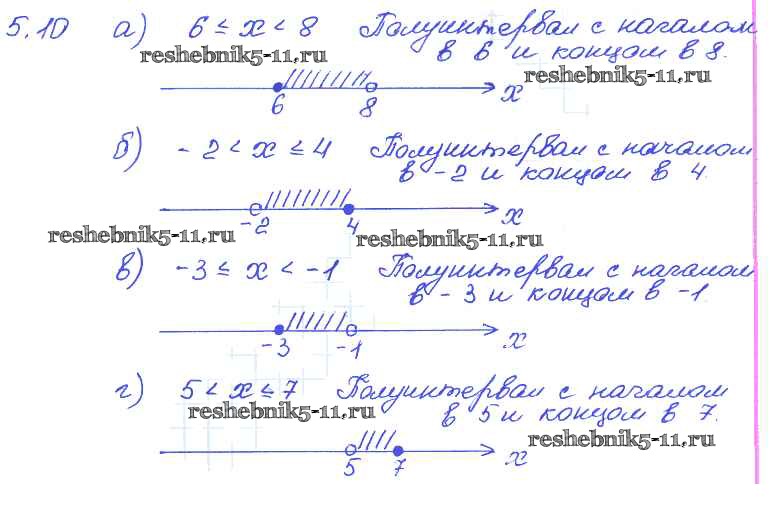 5.10 а) 6 ≤ x < 8 Полуинтервал с началом
в 6 и концом в 8.
reshebnik5-11.ru
reshebnik5-11.ru
6 8 x
б) -2 < x ≤ 4 Полуинтервал с началом
в -2 и концом в 4.
-2 4 x
reshebnik5-11.ru
reshebnik5-11.ru
в) -3 ≤ x < -1 Полуинтервал с началом
в -3 и концом в -1.
-3 -1 x
г) 5 < x ≤ 7 Полуинтервал с началом
в 5 и концом в 7.
reshebnik5-11.ru
reshebnik5-11.ru
5 7 x